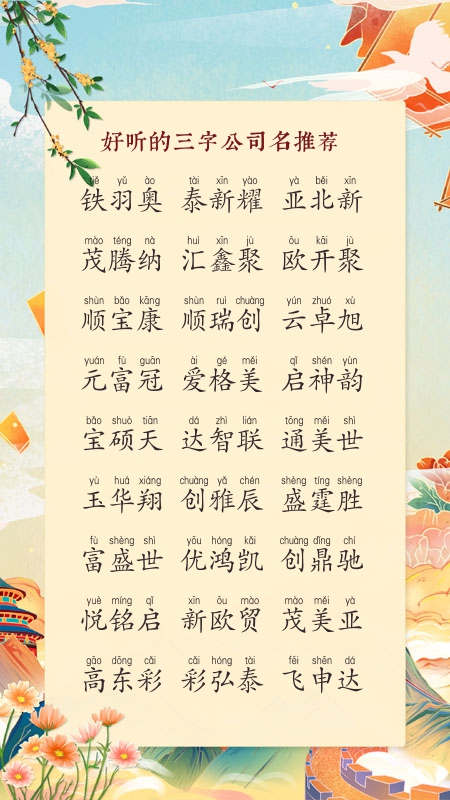 好听的三字公司名推荐
tiě yǔ ào tài xīn yào yà běi xīn
铁羽奥 泰新耀 亚北新
mào téng nà huì xīn jù ōu kāi jù
茂腾纳 汇鑫聚 欧开聚
shùn bǎo kāng shùn ruì chuàng yún zhuó xù
顺宝康 顺瑞创 云卓旭
yuán fù guān ài gé měi qǐ shén yùn
元富冠 爱格美 启神韵
bǎo shuò tiān dá zhì lián tōng měi shì
宝硕天 达智联 通美世
yù huá xiáng chuàng yǎ chén shèng tíng shèng
玉华翔 创雅辰 盛霆胜
fù shèng shì yōu hóng kǎi chuàng dǐng chí
富盛世 优鸿凯 创鼎驰
yuè míng qǐ xīn ōu mào mào měi yà
悦铭启 新欧贸 茂美亚
gāo dōng cǎi cǎi hóng tài fēi shēn dá
高东彩 彩弘泰 飞申达